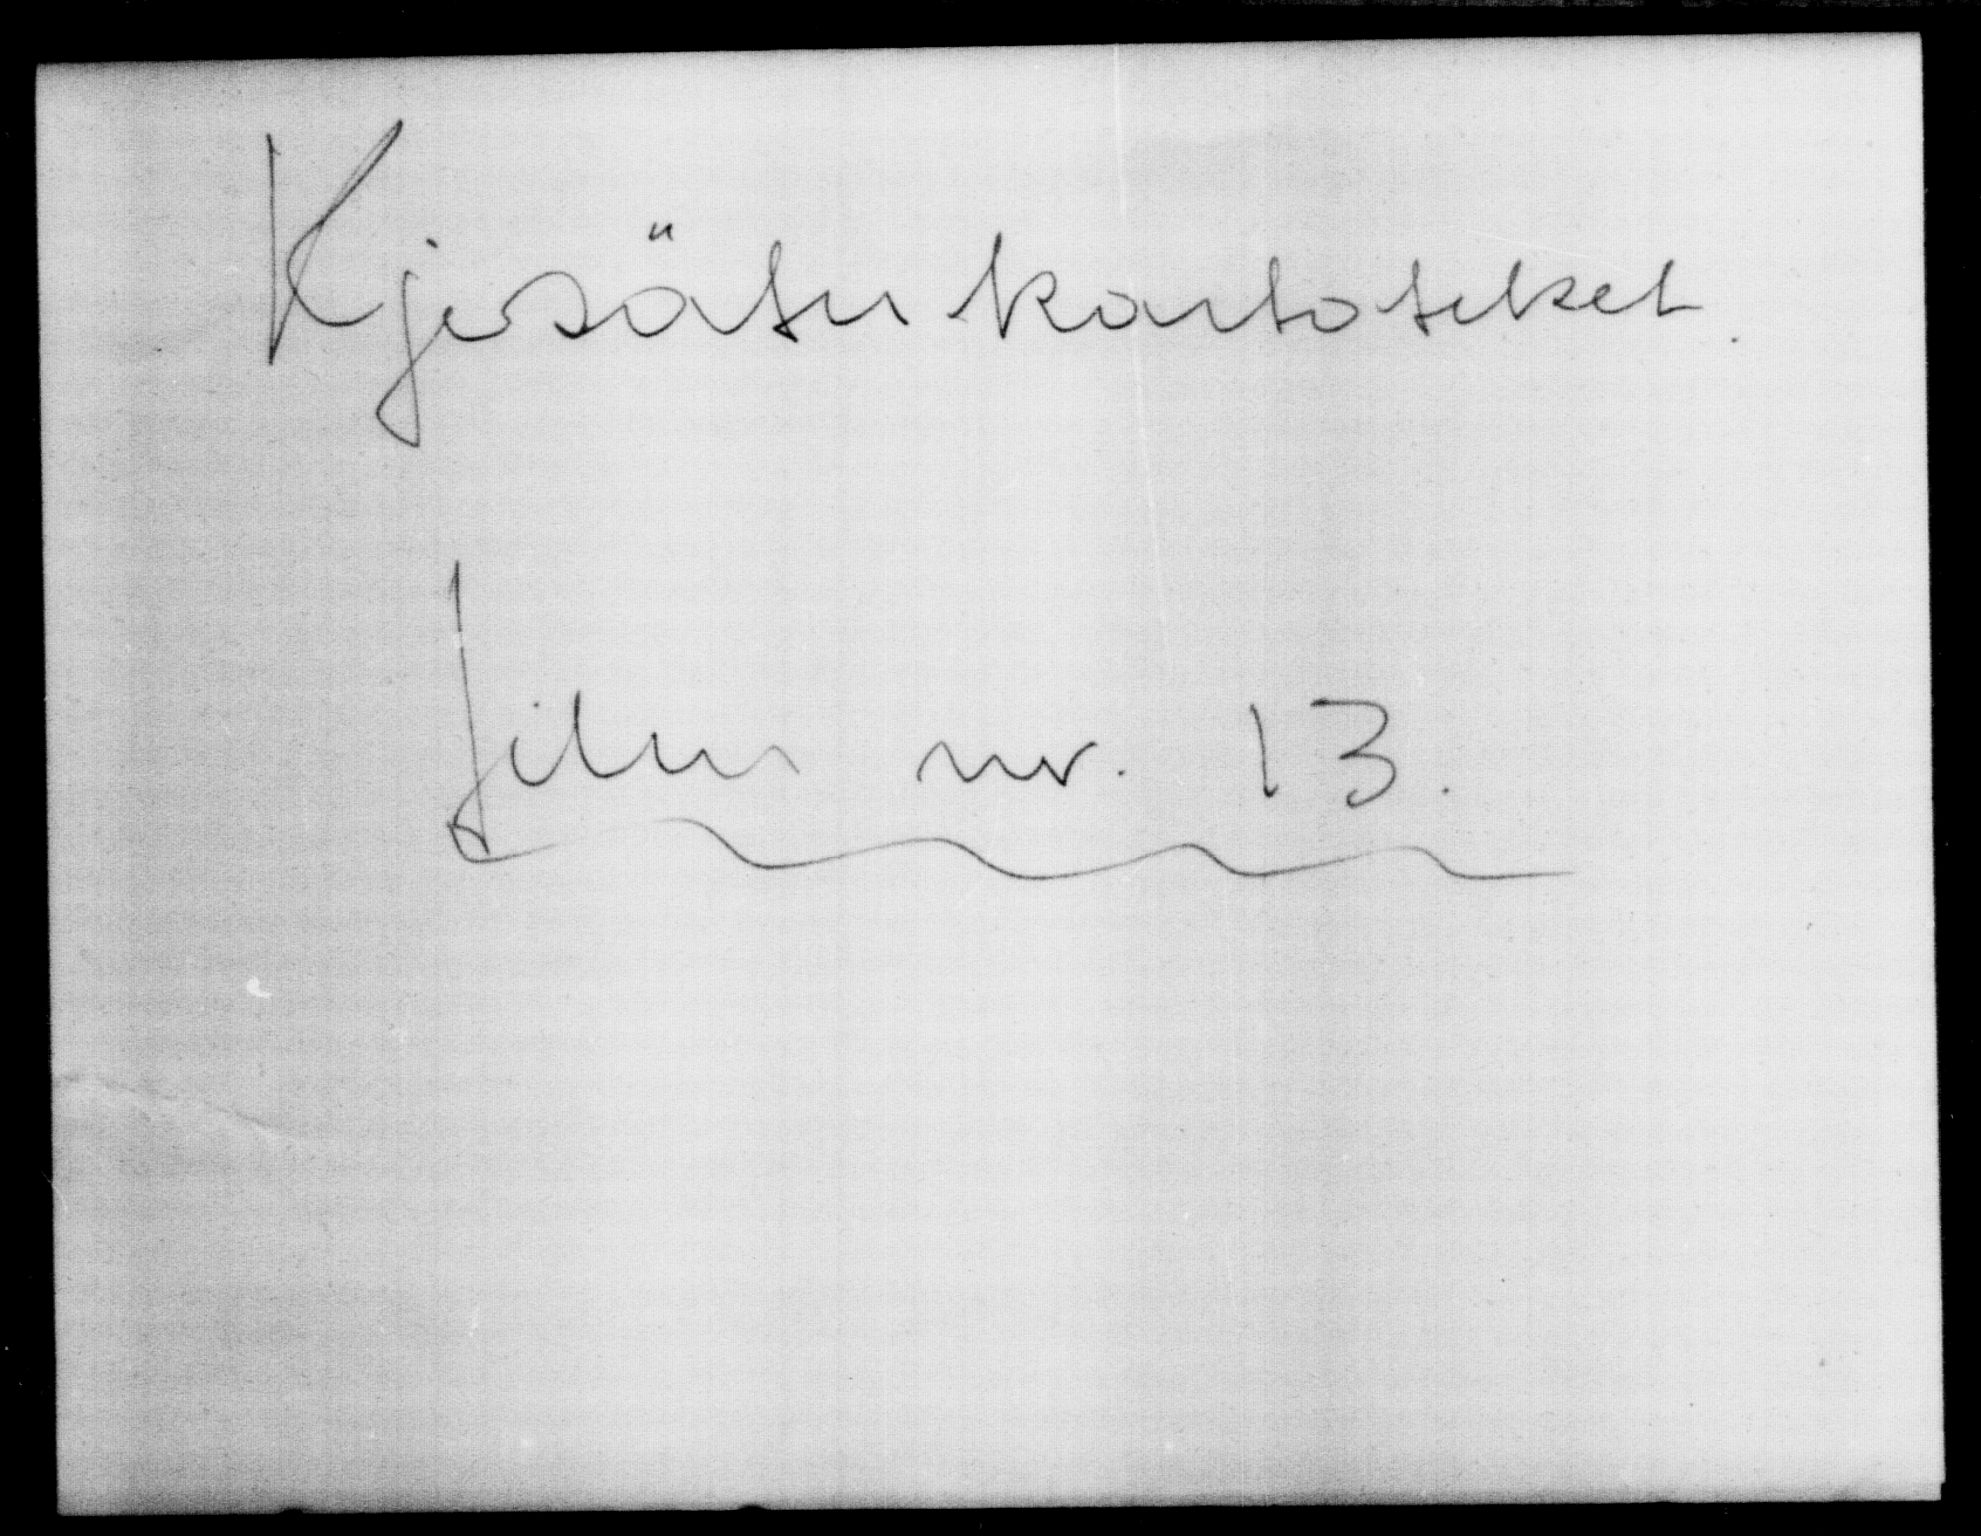 Kjesäter kartoteket.
Film nr. 13.